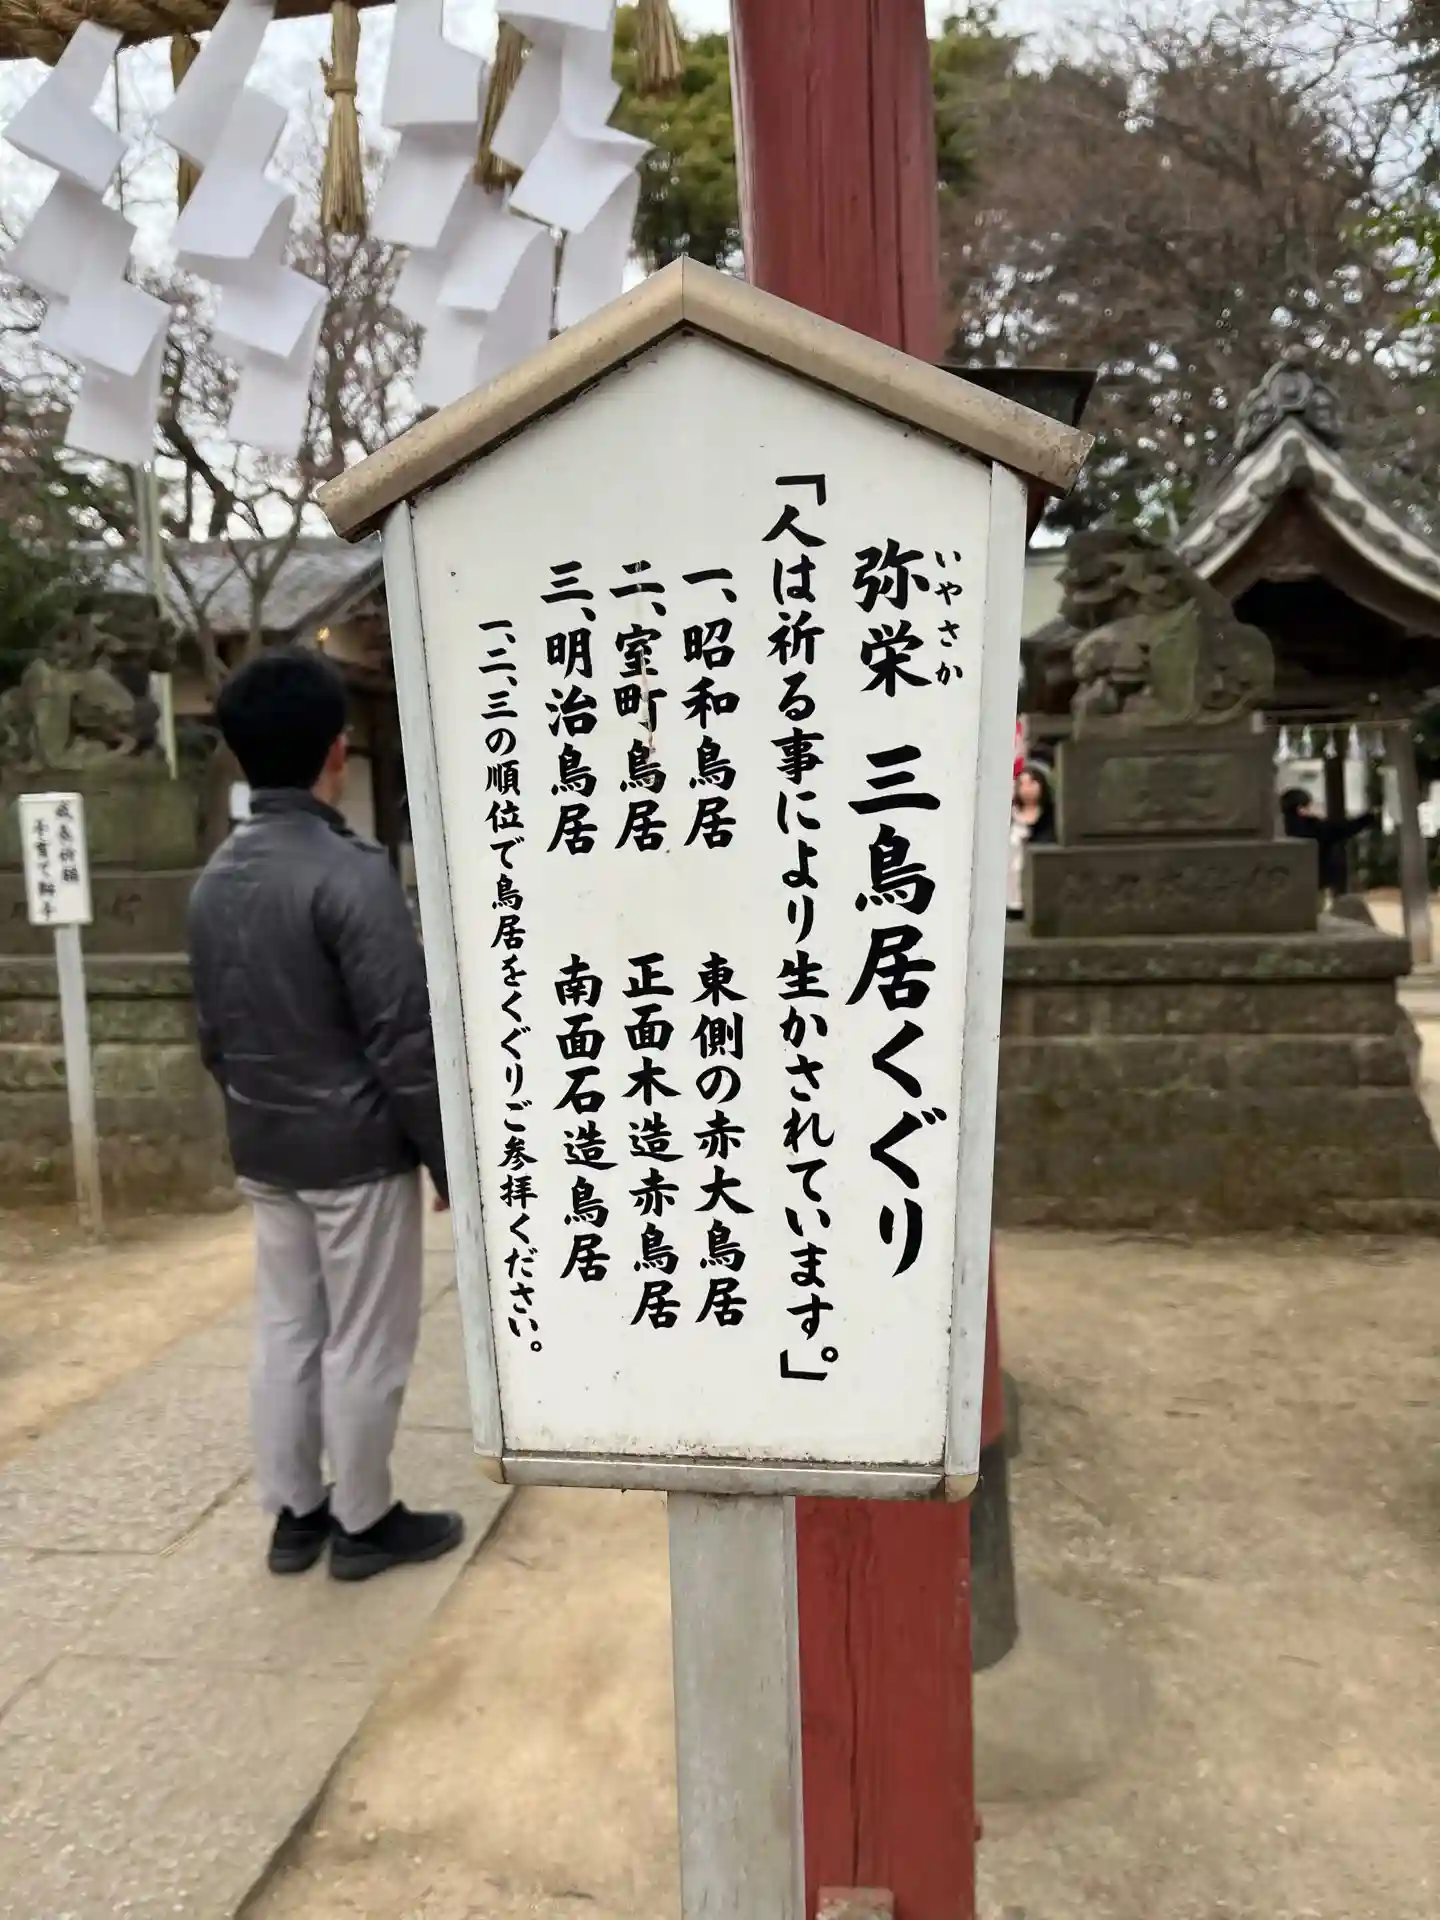 弥栄 三鳥居くぐり
いやさか
「人は祈る事により生かされています。」
一、昭和鳥居 東側の赤大鳥居
二、室町鳥居 正面木造赤鳥居
三、明治鳥居 南面石造鳥居
一、二、三の順位で鳥居をくぐりご参拝ください。
成長祈願
子育て獅子